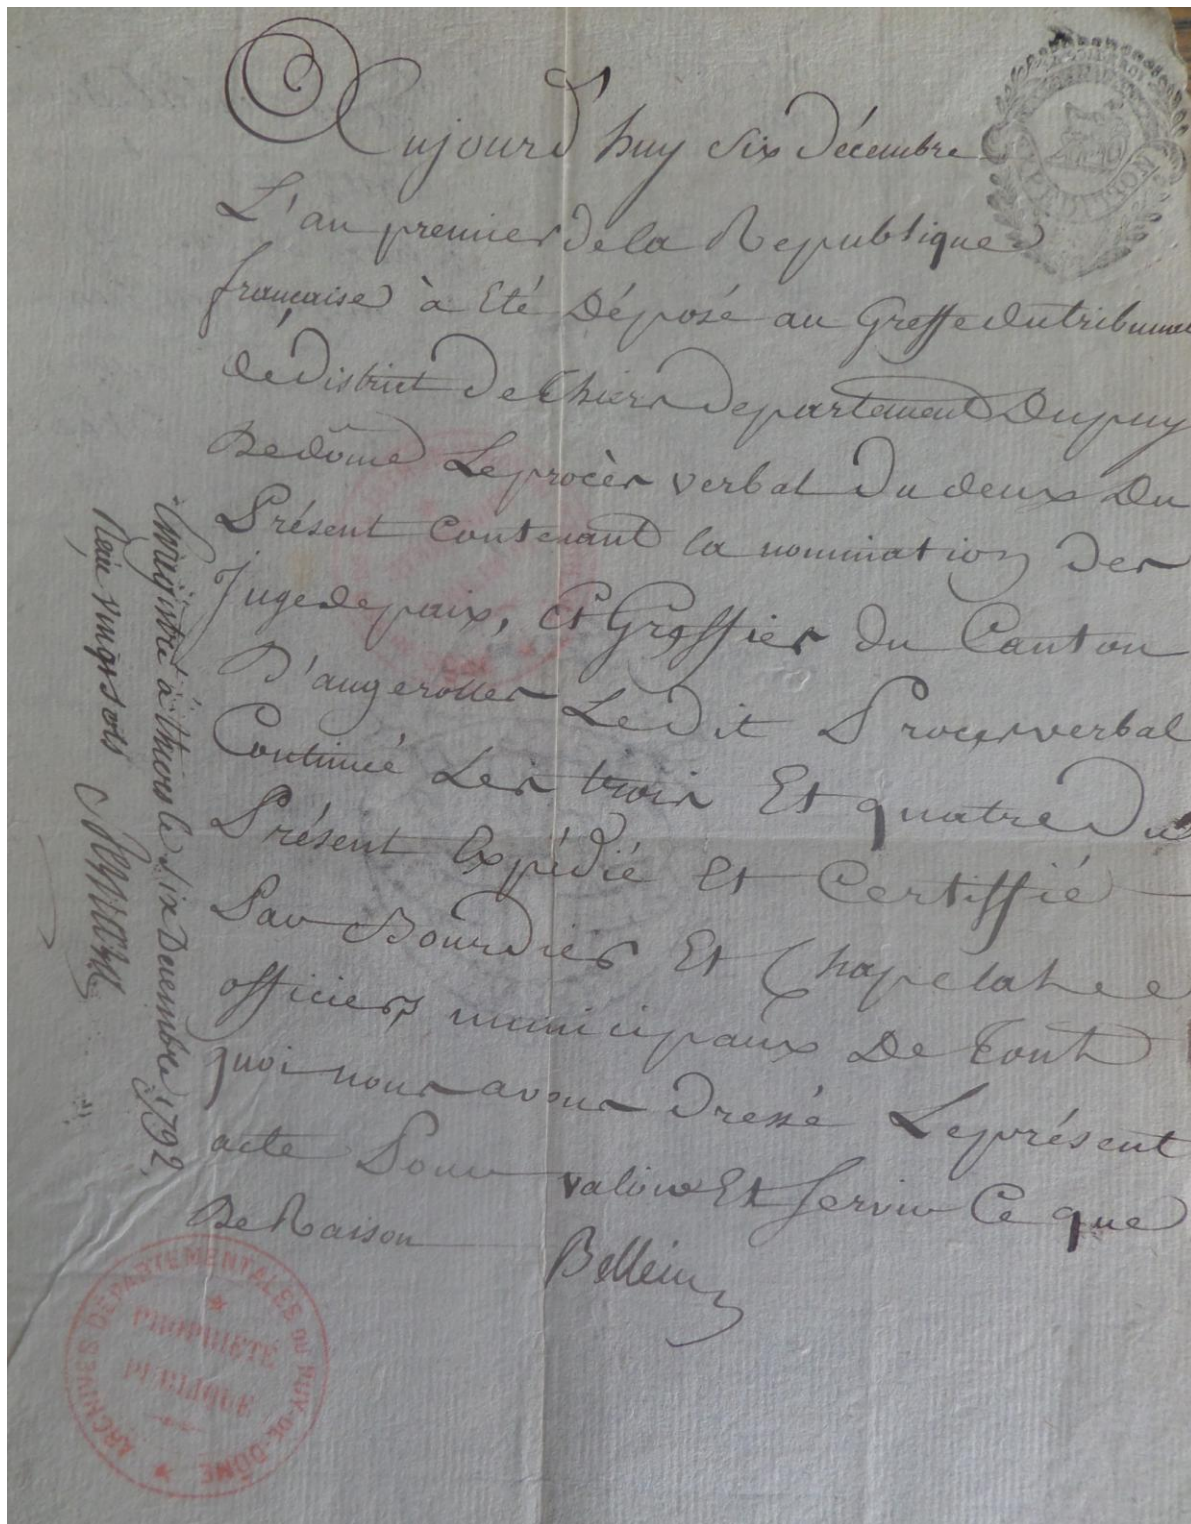 Aujourd'huy six décembre
L'an premier de la Republique
française à Eté Déposé au Greffe du tribunal
de District de thiers departement Dupuy
Dedôme Le procès verbal du deux Du
Présent Contenant la nomination des
Juge de paix, Et Greffier du Canton
D'augerolles Le Dit Procès verbal
Continué Les trois Et quatre Du
Présent Expédié Et Certiffié
Par Bourdier Et Chapelat
officiers municipaux De Tout
quoi nous avons Dressé Le présent
acte Pour valoir Et servir Ce que
De Raison
Bellein
Enregistré à thiers le six Decembre 1792,
Reçu vingt sols
ARCHIVES DÉPARTEMENTALES DU PUY-DE-DÔME
PROPRIÉTÉ
PUBLIQUE